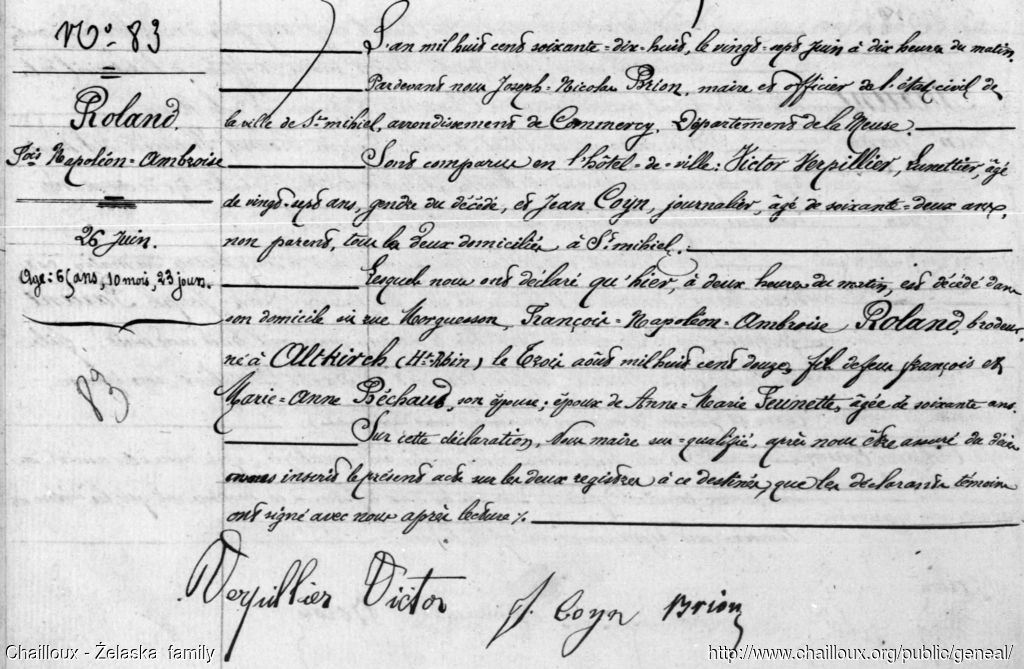 N° 83
Roland.
Fois Napoléon=Ambroise
26 Juin.
Age: 65 ans, 10 mois, 23 jours.
83
L'an mil huit cent soixante=dix=huit, le vingt=sept Juin à dix heures du matin.
Pardevant nous Joseph=Nicolas Brion, maire et officier de l'état civil de
la ville de St mihiel, arrondissement de Commercy, Département de la Meuse.
Sont comparus en l'hôtel=de=ville: Victor Verpillier, Lunettier, âgé
de vingt=sept ans, gendre du décédé, et Jean Coyn, journalier, âgé de soixante=deux ans,
non parent, tous les deux domiciliés à St mihiel.
Lesquels nous ont déclaré qu'hier, à deux heures du matin, est décédé dans
son domicile sis rue Morguesson, François=Napoléon=Ambroise Roland, brodeur,
né à Altkirch (Ht Rhin) le trois août mil huit cent douze, fils de feu françois et
Marie=Anne Béchaud, son épouse; époux de Anne=Marie Jeunette, âgée de soixante ans.
Sur cette déclaration, Nous maire sus=qualifié, après nous être assuré du décès
avons inscrit le présent acte sur les deux registres à ce destinés, que les déclarants témoins
ont signé avec nous après lecture %.
Verpillier Victor
J. Coyn
Brion
Chailloux - Żelaska family
http://www.chailloux.org/public/geneal/